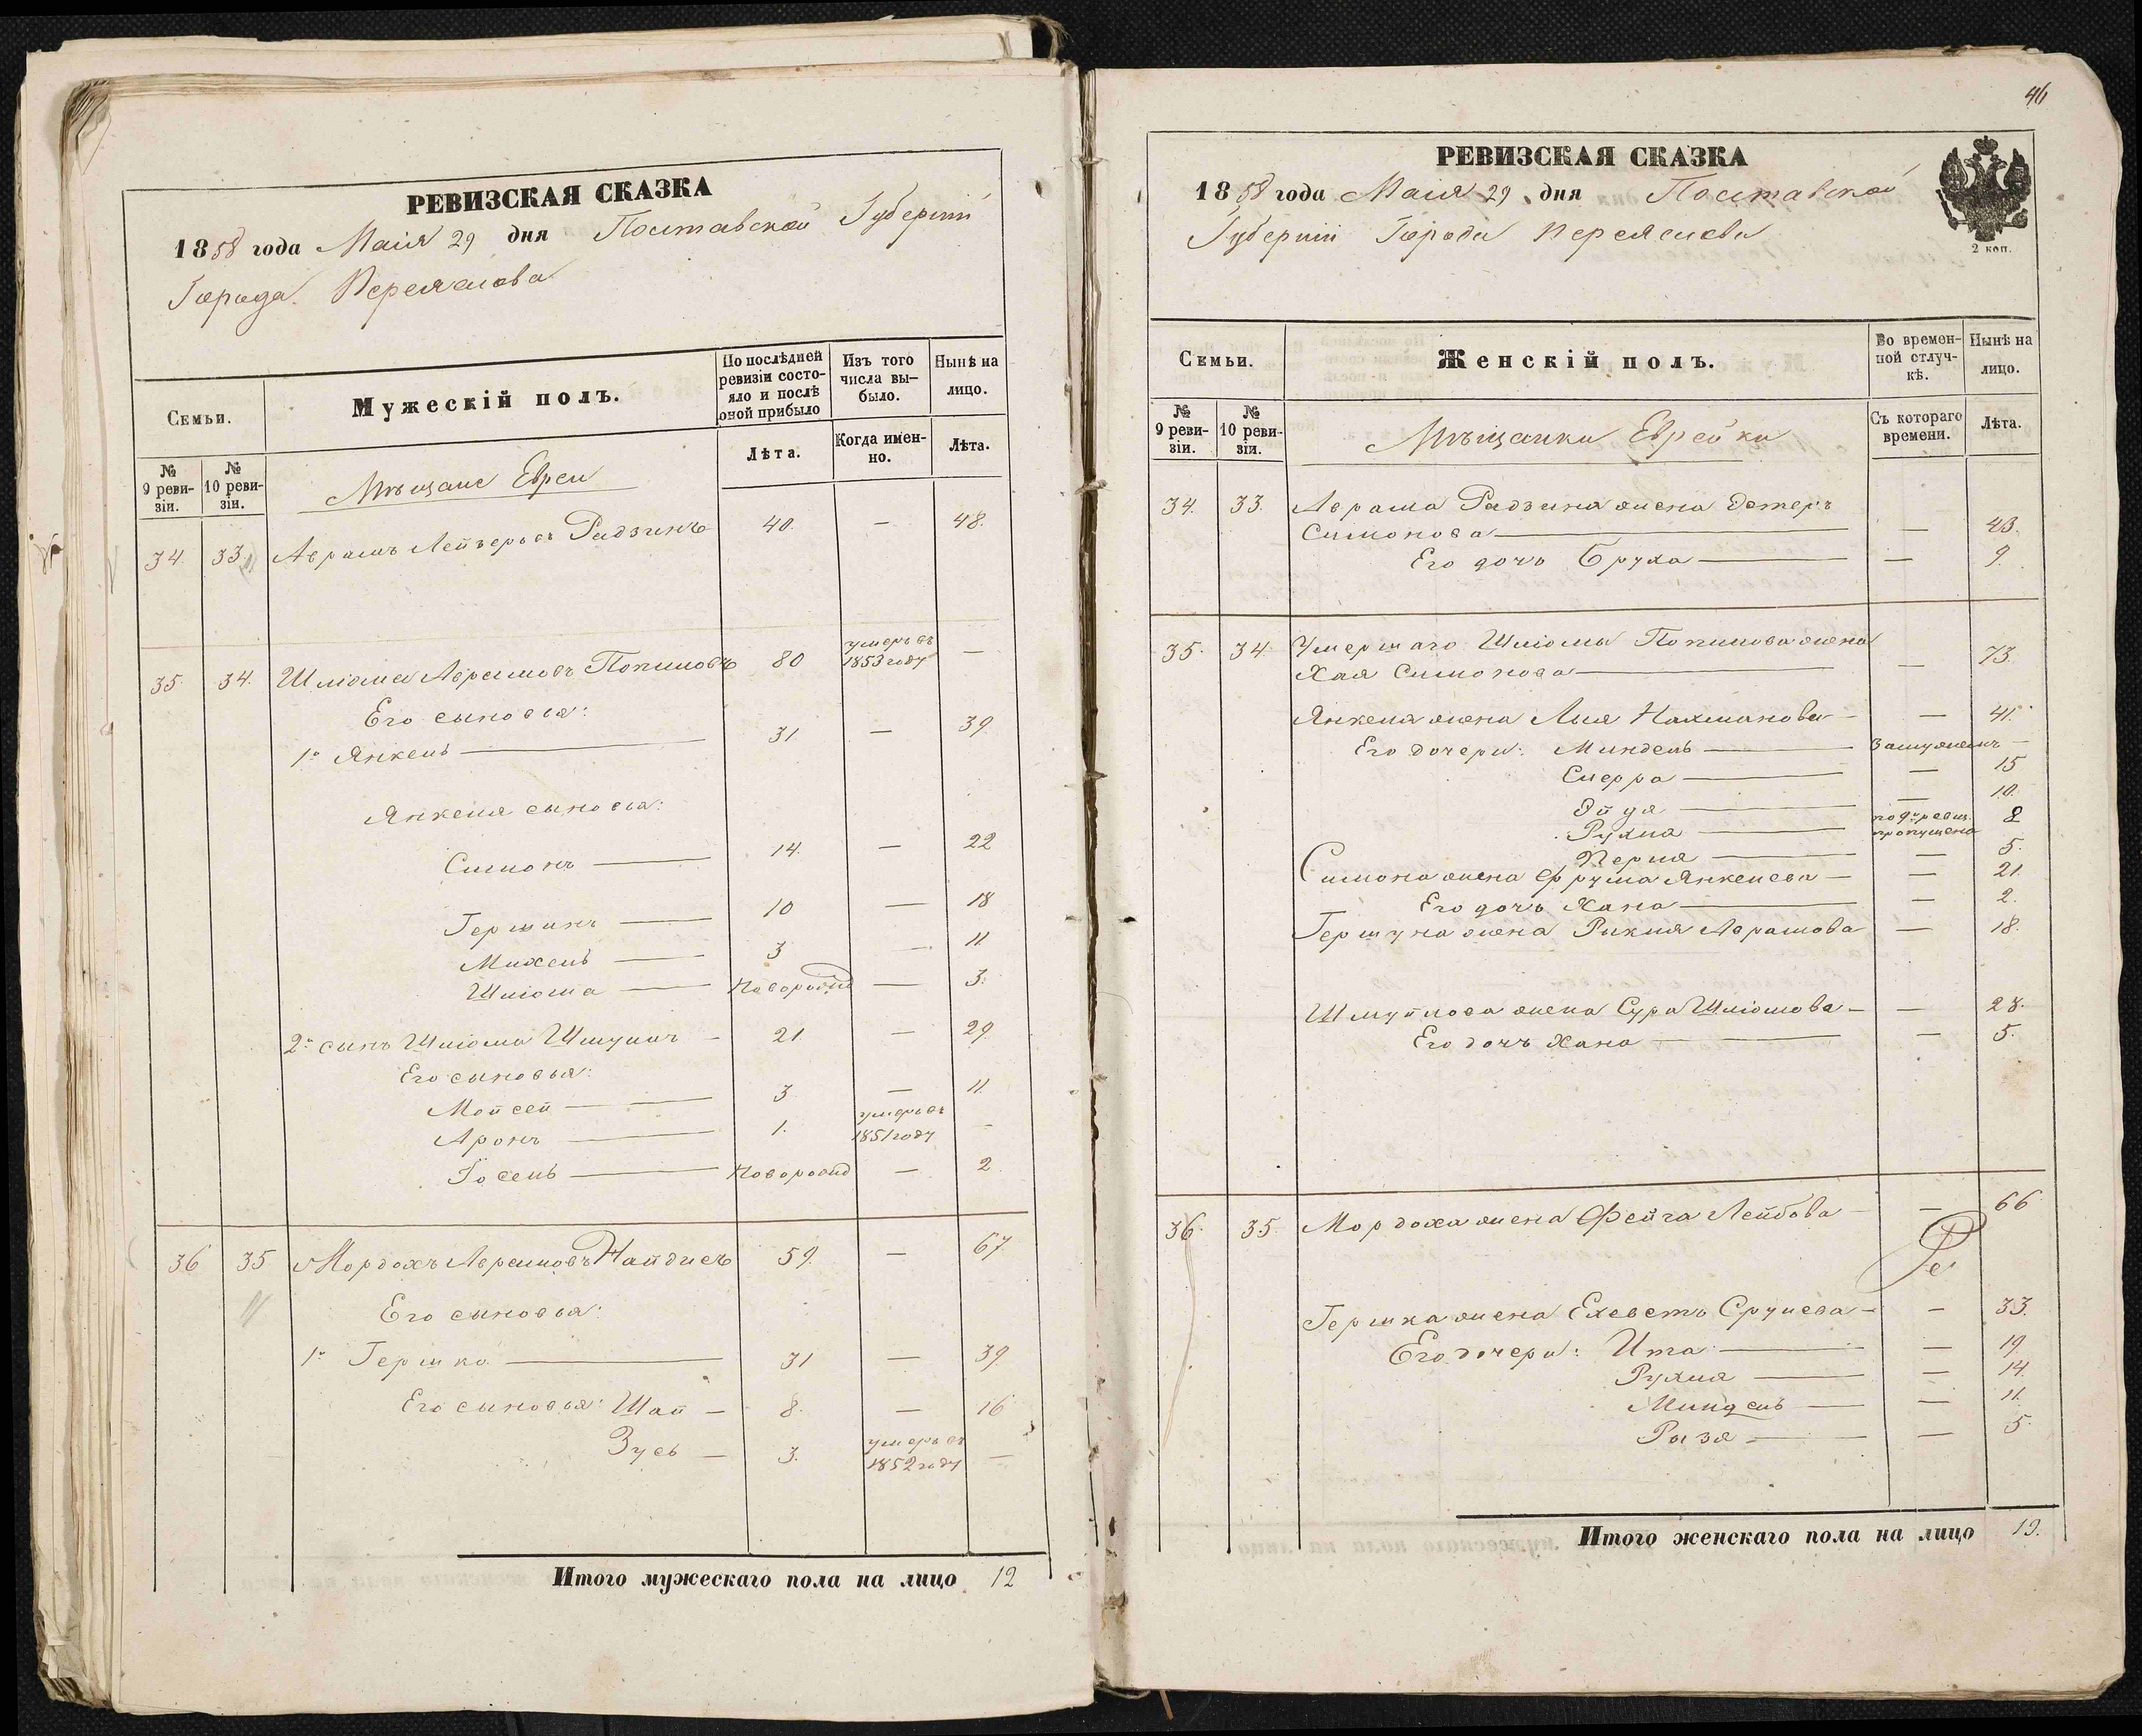 РЕВИЗСКАЯ СКАЗКА
1858 года Маія 29 дня Полтавской Губерніи
Города Переяслова
Семьи.
Мужескій полъ.
По послѣдней ревизіи состояло и послѣ оной прибыло
Изъ того числа вы-было.
Нынѣ на лицо.
№ 9 реви-зіи.
№ 10 реви-зіи.
Мѣщане Евреи
Лѣта.
Когда имен-но.
Лѣта.
34. 33. Аврамъ Лейзеровъ Радзинъ 40. — 48.
35. 34. Шліома Аврамовъ Попиловъ 80 умеръ въ 1853 году —
Его сыновья:
1й Янкель — 31 — 39
Янкеля сыновья:
Симонъ — 14. — 22
Гершинъ — 10 — 18
Михель — 3 — 11
Шліома — Новорожд — 3.
2й сынъ Шліома Шмуилъ — 21 — 29.
Его сыновья:
Мойсей — 3 — 11.
Аронъ — 1. умеръ въ 1851 году —
Іосель — Новорожд — 2.
36 35 Мордохъ Аврамовъ Найдисъ 59. — 67.
Его сыновья:
1й Гершко — 31 — 39
Его сыновья: Шай — 8. — 16
Зусь — 3. умеръ въ 1852 году —
Итого мужескаго пола на лицо 12
46
РЕВИЗСКАЯ СКАЗКА
1858 года Маія 29 дня Полтавской
Губерніи Города Переяслова
2 коп.
Семьи.
Женскій полъ.
Во времен-ной отлуч-кѣ.
Нынѣ на лицо.
№ 9 реви-зіи.
№ 10 реви-зіи.
Мѣщанки Еврейки
Съ котораго времени.
Лѣта.
34. 33. Аврама Радзина жена Эстеръ
Симонова — — 43.
Его дочь Бруха — — 9.
35. 34 Умершаго Шліомы Попилова жена
Хая Симонова — — 73.
Янкеля жена Лия Нахманова — — 41.
Его дочери: Миндель — Замужемъ —
Сиерра — — 15
Эйдя — — 10.
Рухля — по 9й ревиз. пропущена 8
Перля — — 5.
Симона жена Фрума Янкелева — — 21.
Его дочь Хана — — 2.
Гершуна жена Рикля Аврамова — 18.
Шмуйлова жена Сура Шліомова — — 28.
Его дочь Хана — — 5.
36. 35. Мордоха жена Фейга Лейбова — — 66
Гершка жена Ехеветъ Срулева — — 33.
Его дочери: Ита — — 19.
Рухля — — 14.
Миндель — — 11.
Рыза — — 5.
Итого женскаго пола на лицо 19.